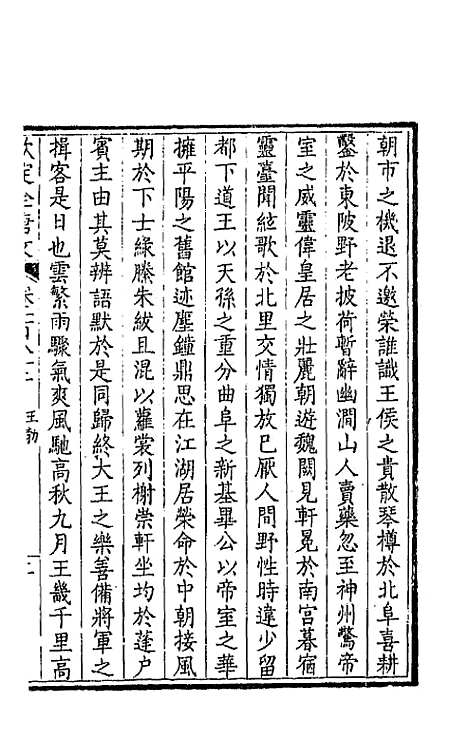 朝市之機退不邀榮誰識王侯之貴散琴樽於北阜喜耕
鑿於東陂野老披荷暫辭幽澗山人賣藥忽至神州驚帝
室之威靈偉皇居之壯麗朝遊魏闕見軒冕於南宮暮宿
靈臺聞絃歌於北里交情獨放已厭人間野性時違少留
都下道王以天孫之重分曲阜之新基畢公以帝室之華
擁平陽之舊館迹塵鐘鼎思在江湖居榮命於中朝接風
期於下士綠縢朱紱且混以蘿裳列榭崇軒坐均於蓬户
賓主由其莫辨語默於是同歸終大王之樂善備將軍之
揖客是日也雲繁雨驟氣爽風馳高秋九月王畿千里高
欽定全唐文 卷一百八十一 王勃 二